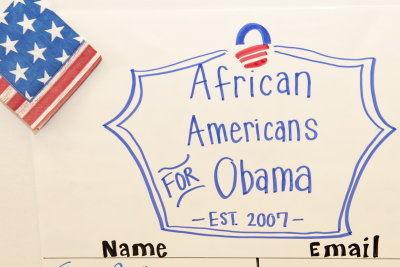 African
Americans
FOR Obama
- EST. 2007 -
Name Email